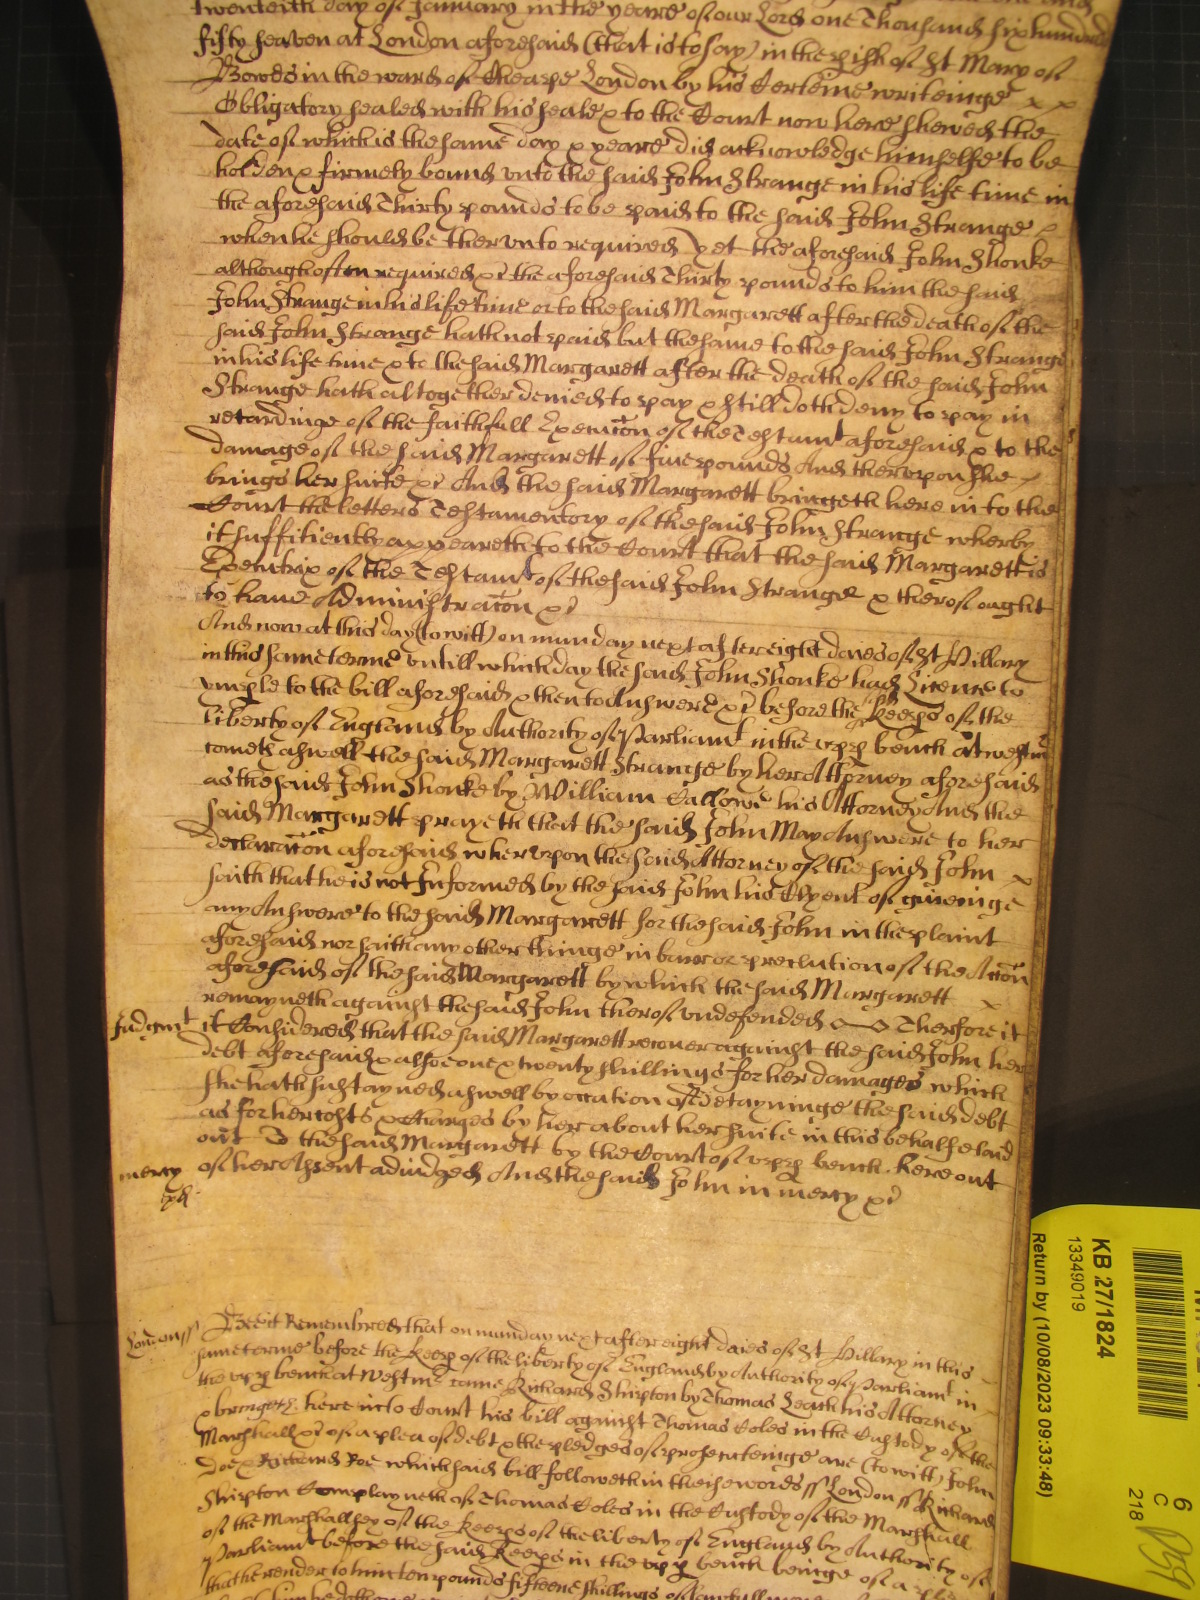 twenteith day of January in the yeare of our Lord one Thousand six hundred
fifty seaven at London aforesaid (that is to say) in the pish of St Mary of
Bowes in the ward of Cheape London by his Certeine writeinge x x
Obligatory sealed with his seale & to the Court now here shewed the
date of which is the same day & yeare did acknowledge himselfe to be
holden & firmely bound unto the said John Strange in his life time in
the aforesaid Thirty pounds to be paid to the said John Strange x
when he should be therunto required yet the aforesaid John Shonke
although often required &c the aforesaid Thirty pounds to him the said
John Strange in his life time or to the said Margarett after the death of the
said John Strange hath not paid but the same to the said John Strange
in his life time & to the said Margarett after the death of the said John
Strange hath altogether denied to pay & still doth deny to pay in
retardinge of the faithfull Execution of the Testamt aforesaid & to the
damage of the said Margarett of five pounds And therupon she
brings her suite &c And the said Margarett bringeth here in to the
Court the letters Testamentory of the said John Strange wherby
it suffitiently appeareth to the Court that the said Margarett is
Executrix of the Testamt of the said John Strange & therof ought
to have Administracon &c
And now at this day (to witt) on munday next after eight daies of St Hillary
in this same terme untill which day the said John Shonke had Licence to
imple to the bill aforesaid & then to Answere &c before the Keeps of the
liberty of England by Authority of Parliamt in the upp bench at Westmr
cometh aswell the said Margarett Strange by her Attorney aforesaid
as the said John Shonke by William Callowe his Attorney And the
said Margarett prayeth that the said John May Answere to her
declaracon aforesaid wherupon the said Attorney of the said John x
saith that he is not Informed by the said John his Clyent of giveinge
any Answere to the said Margarett for the said John in the plaint
aforesaid nor saith any other thinge in barr or preclution of the Accon
aforesaid of the said Margarett by which the said Margarett x
remayneth against the said John therof undefended Therfore it
Judgmt it Considered that the said Margarett recover against the said John her
debt aforesaid & alsoe one & twenty shillings for her damages which
she hath sustayned aswell by occation of Detayninge the said debt
as for her costs & Charges by her about her suite in this behalfe laid
out To the said Margarett by the Court of upp bench here out
mercy of her Assent adiudged And the said John in mercy &c
London ss Bee it Remembred that on munday next after eight daies of St Hillary in this
same terme before the Keeps of the liberty of England by Authority of Parliamt in
the upp bench at Westmr came Richard Shipton by Thomas Leach his Attorney
& bringeth here into Court his bill against Thomas Coles in the Custody of the
Marshall &c of a plea of debt & the pledges of prosecuteinge are (to witt) John
Doe & Richard Roe which said bill followeth in theise words ss London ss Richard
Shipton Complayneth of Thomas Coles in the Custody of the Marshall
of the Marshallsey of the Keeps of the liberty of England by Authority of
Parliamt before the said Keeps in the upp bench beinge of a plea
that he render to him ten pounds fifteene shillings of lawfull
KB 27/1824
13349019
Return by (10/08/2023 09:33:48)
6
C
218